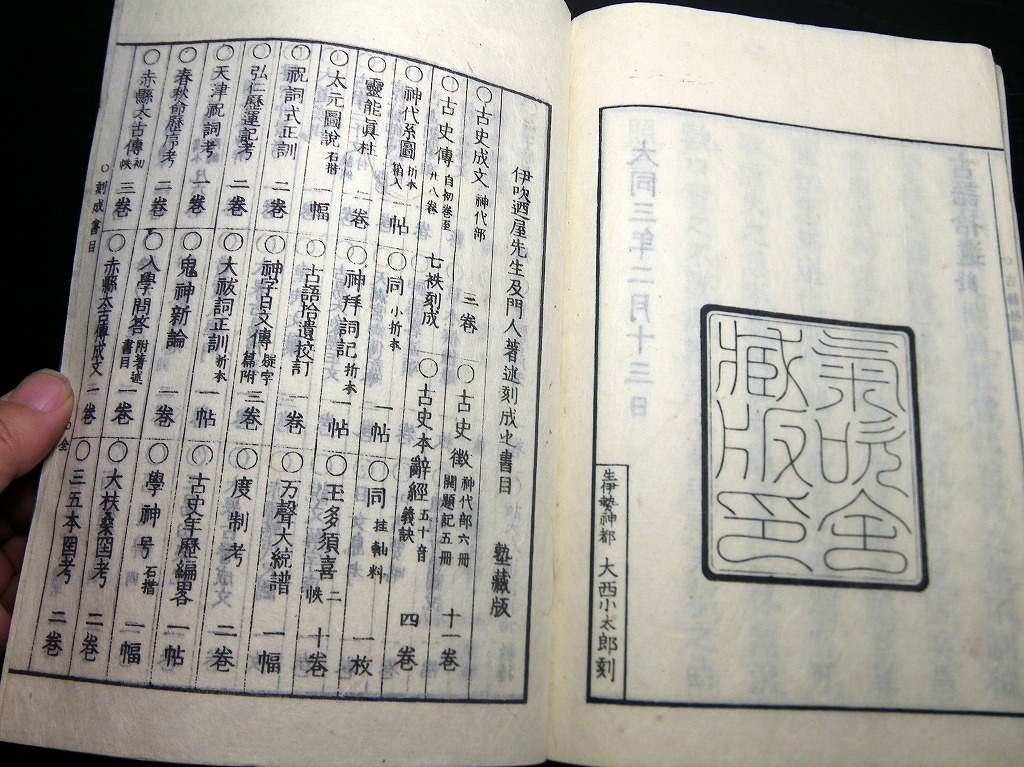 大同三年二月十三日
氣吹舎
藏版印
生伊勢神都 大西小太郎刻
伊吹廼屋先生及門人著述刻成之書目 塾藏版
○古史成文 神代部 三巻 ○古史徴 神代部六冊 開題記五冊 十一巻
○古史傳 自初巻至廿八巻 七袟刻成 ○古史本辭經 五十音義訣 四巻
○神代系圖 折本箱入 一帖 ○同 小折本 一帖 ○同 挂軸料 一枚
○靈能眞柱 二巻 ○神拜詞記 折本 一帖 ○玉多須喜 二帙 十巻
○太元圖説 石摺 一幅 ○古語拾遺挍訂 一巻 ○万聲大統譜 一幅
○祝詞式正訓 二巻 ○神字日文傳 疑字篇附 三巻 ○度制考 二巻
○弘仁歷運記考 二巻 ○大祓詞正訓 折本 一帖 ○古史年歷編畧 一帖
○天津祝詞考 一巻 ○鬼神新論 一巻 ○學神号 石摺 一幅
○春秋命歷序考 二巻 ○入學問答 附著述書目 一巻 ○大扶桑國考 二巻
○赤縣太古傳 初帙 三巻 ○赤縣太古傳成文 一巻 ○三五本國考 二巻
○刻成書目 ○全